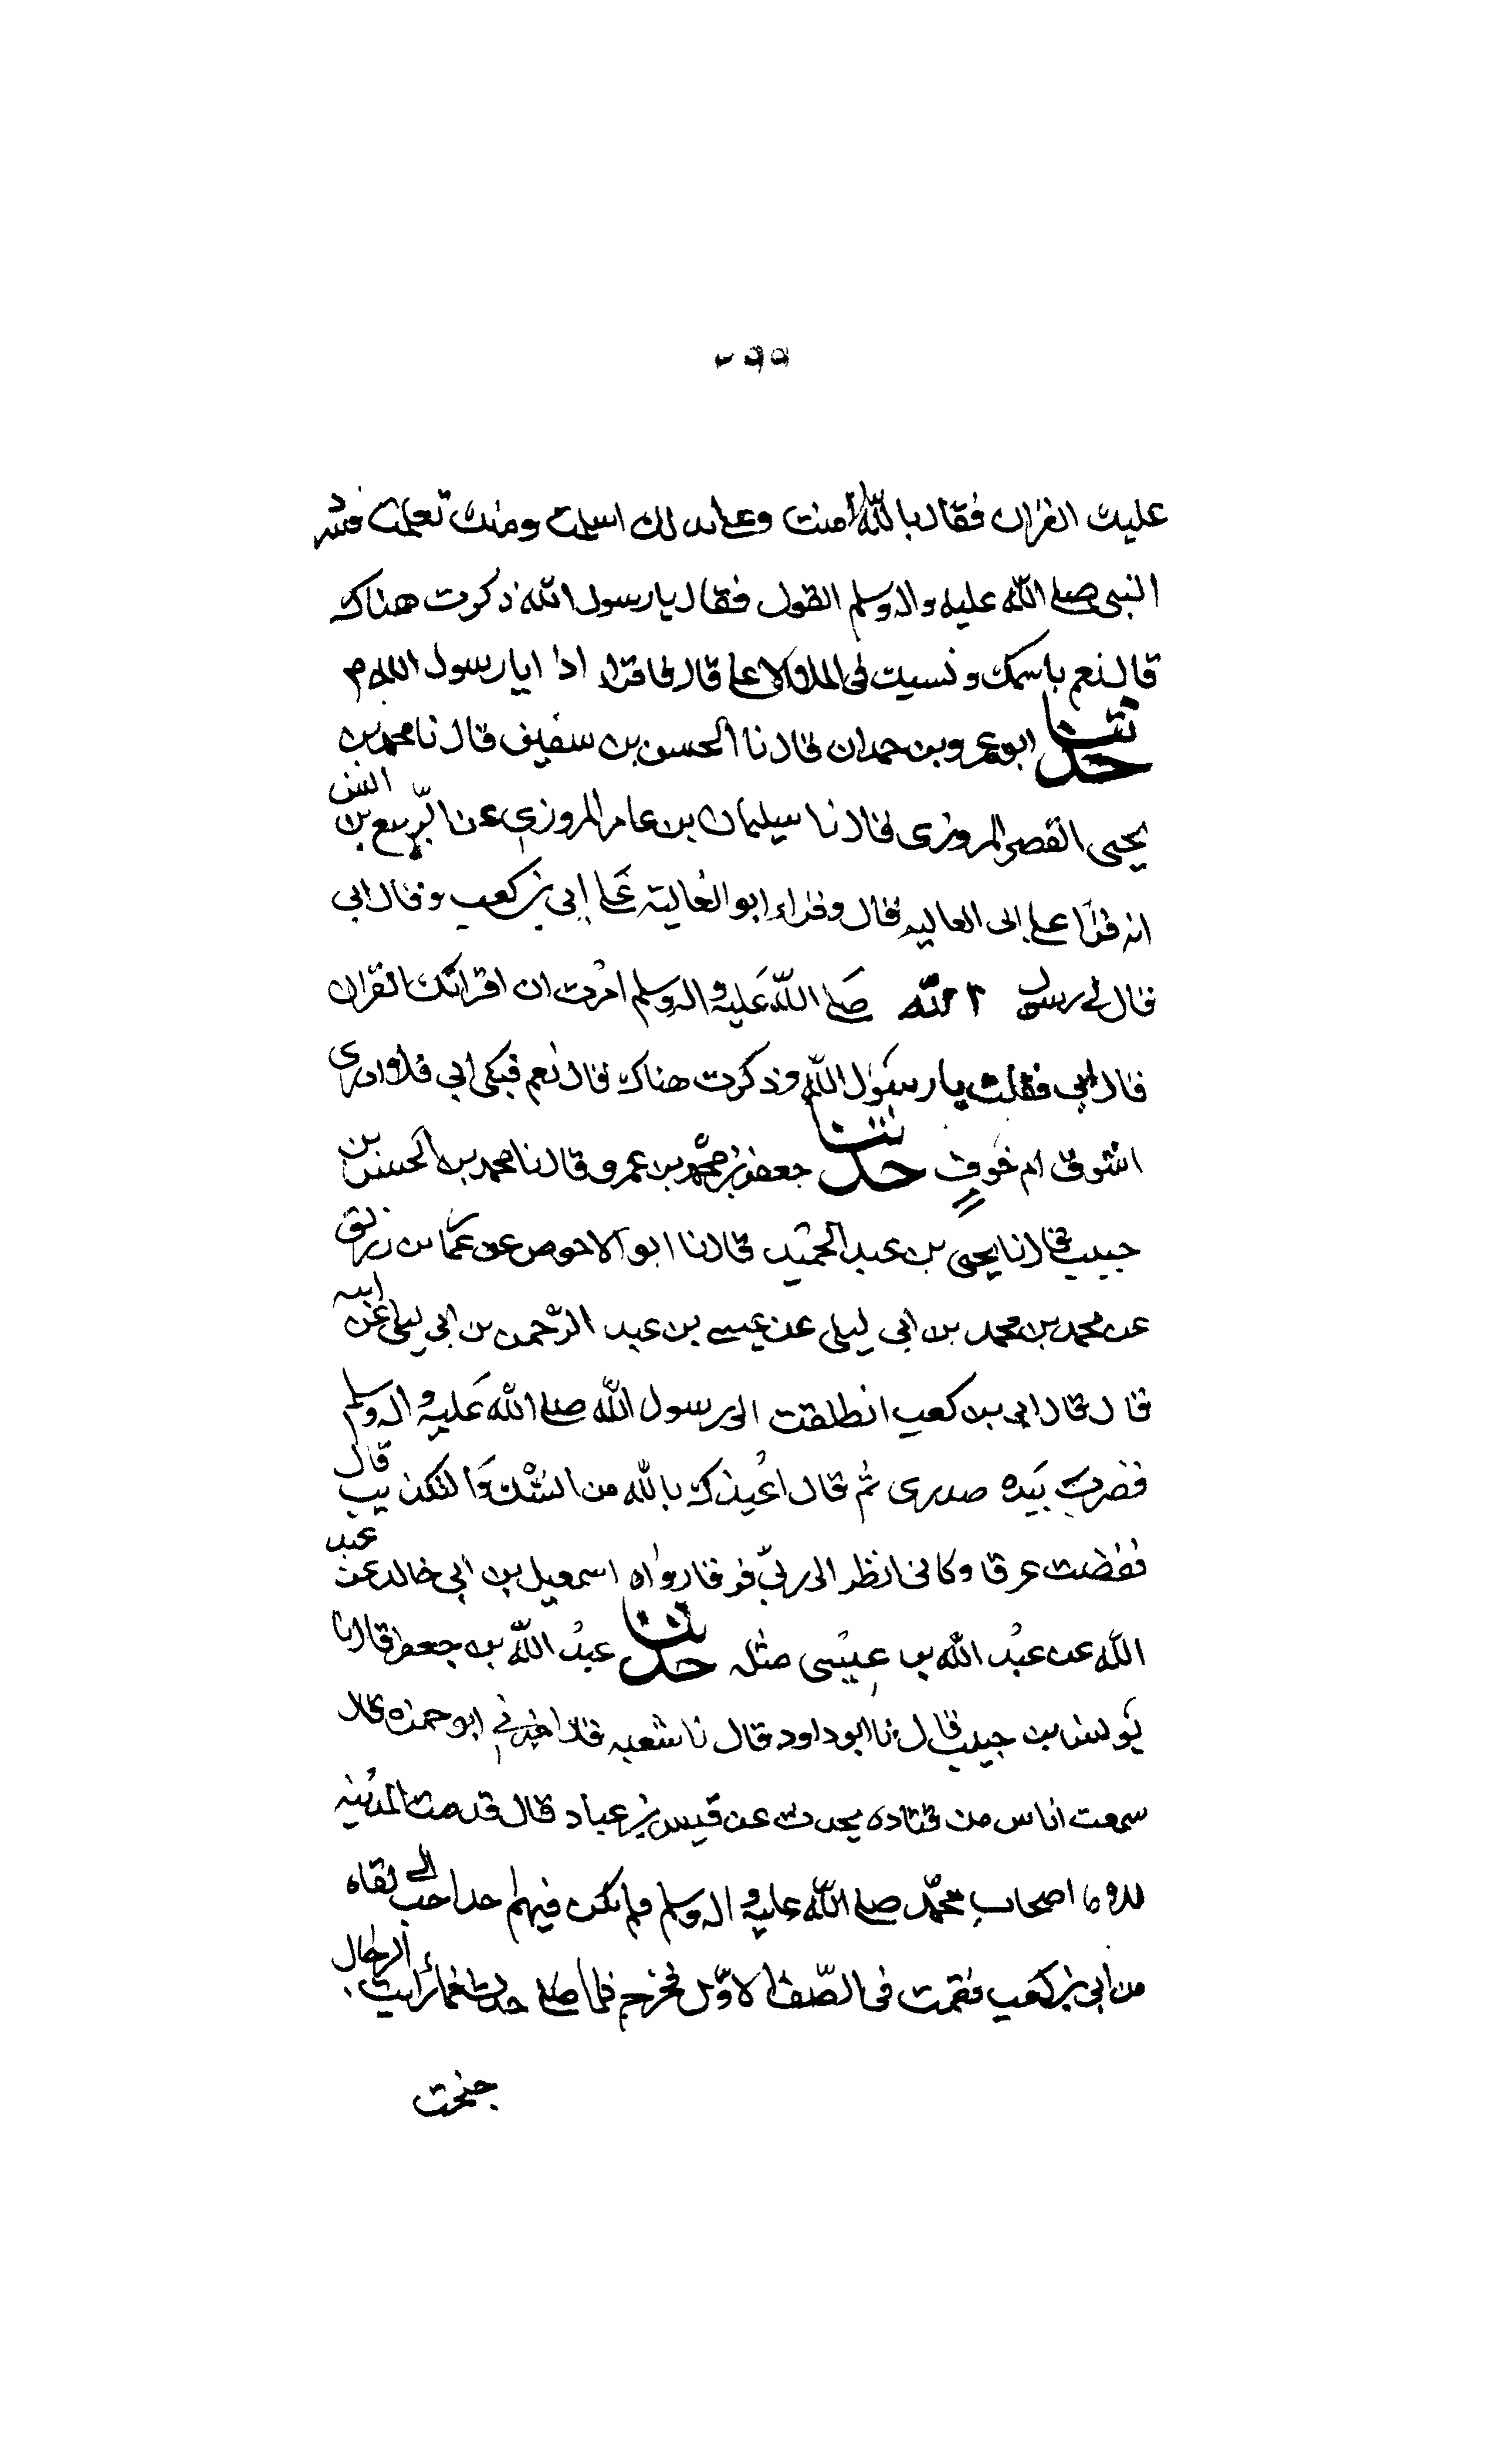 عليك القران فقال بالله امنت وعلى يدك اسلمت ومنك تعلمت فرد
النبي صلے الله عليه واله وسلم القول فقال يا رسول الله ذكرت هناك
قال نعم باسمك ونسبك فى الملاء الاعلى قال فاقراء اذا يا رسول الله م
حدثنا ابو عمرو بن حمدان قال نا الحسن بن سفين قال نا محمد بن
يحيى القصرى المروزى قال نا سليمان بن عامر المروزي عن الربيع بن انس
انه قرا على ابى العاليه قال وقراء ابو العالية على ابي بن كعب وقال ابي
قال لے رسول الله صلے الله عليه واله وسلم امرت ان اقرائك القران
قال ابي فقلت يا رسول الله وذكرت هناك قال نعم فبكى ابي فلا ادرى
اشوق ام خوف حدثنا جعفر بن محمد بن عمرو قال نا محمد بن الحسين بن
حبيب قال نا يحيى بن عبد الحميد قال نا ابو الاحوص عن عمار بن زريق
عن محمد بن محمد بن ابى ليلى عن عيسے بن عبد الرحمن بن ابي ليلى عن ابيه
قال قال ابي بن كعب انطلقت الى رسول الله صلے الله عليه واله وسلم
فضرب بيده صدرى ثم قال اعيذك بالله من الشك والتكذيب قال
ففضت عرقا وكانى انظر الى ربي فرقا رواه اسمعيل بن ابي خالد عن عبد
الله عن عبد الله بن عيسى مثله حدثنا عبد الله بن جعفر قال نا
يونس بن حبيب قال نا ابو داود قال نا شعبه قال اخبرني ابو حمزه قال
سمعت اناس من قتاده يحدث عن قيس بن عباد قال قدمت المدينه
للقاء اصحاب محمد صلے الله عليه واله وسلم فلم يكن فيهم احد احب الے لقاه
من ابي بن كعب فقمت فى الصف الاول فخرج فلما صلى حدث فما رايت الرجال
جنحت